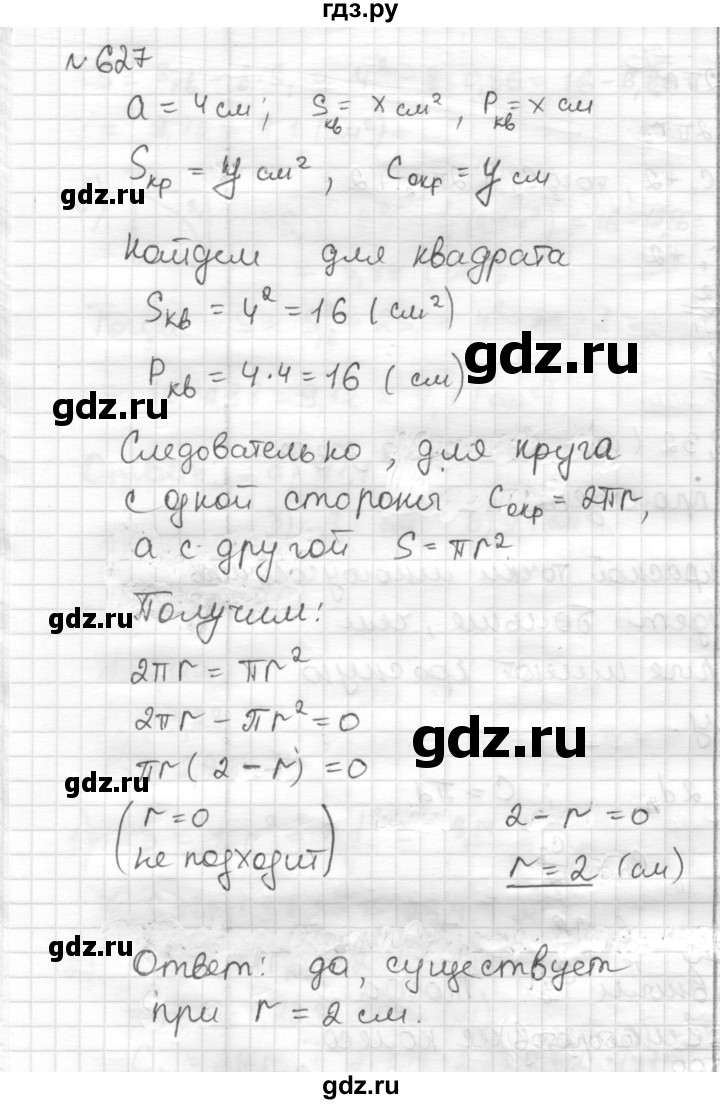 гдз.ру
№ 627
a = 4 см; Sкв = x см², Pкв = x см
Sкр = y см², Cокр = y см
gdz.ru
Найдем для квадрата
Sкв = 4² = 16 (см²)
gdz.ru
Pкв = 4·4 = 16 (см)
gdz.ru
Следовательно, для круга
с одной стороны Cокр = 2πr,
а с другой S = πr².
gdz.ru
Получим:
2πr = πr²
2πr - πr² = 0
gdz.ru
πr(2 - r) = 0
gdz.ru
(r = 0 2 - r = 0
не подходит) r = 2 (см)
gdz.ru
Ответ: да, существует
при r = 2 см.
gdz.ru
gdz.ru